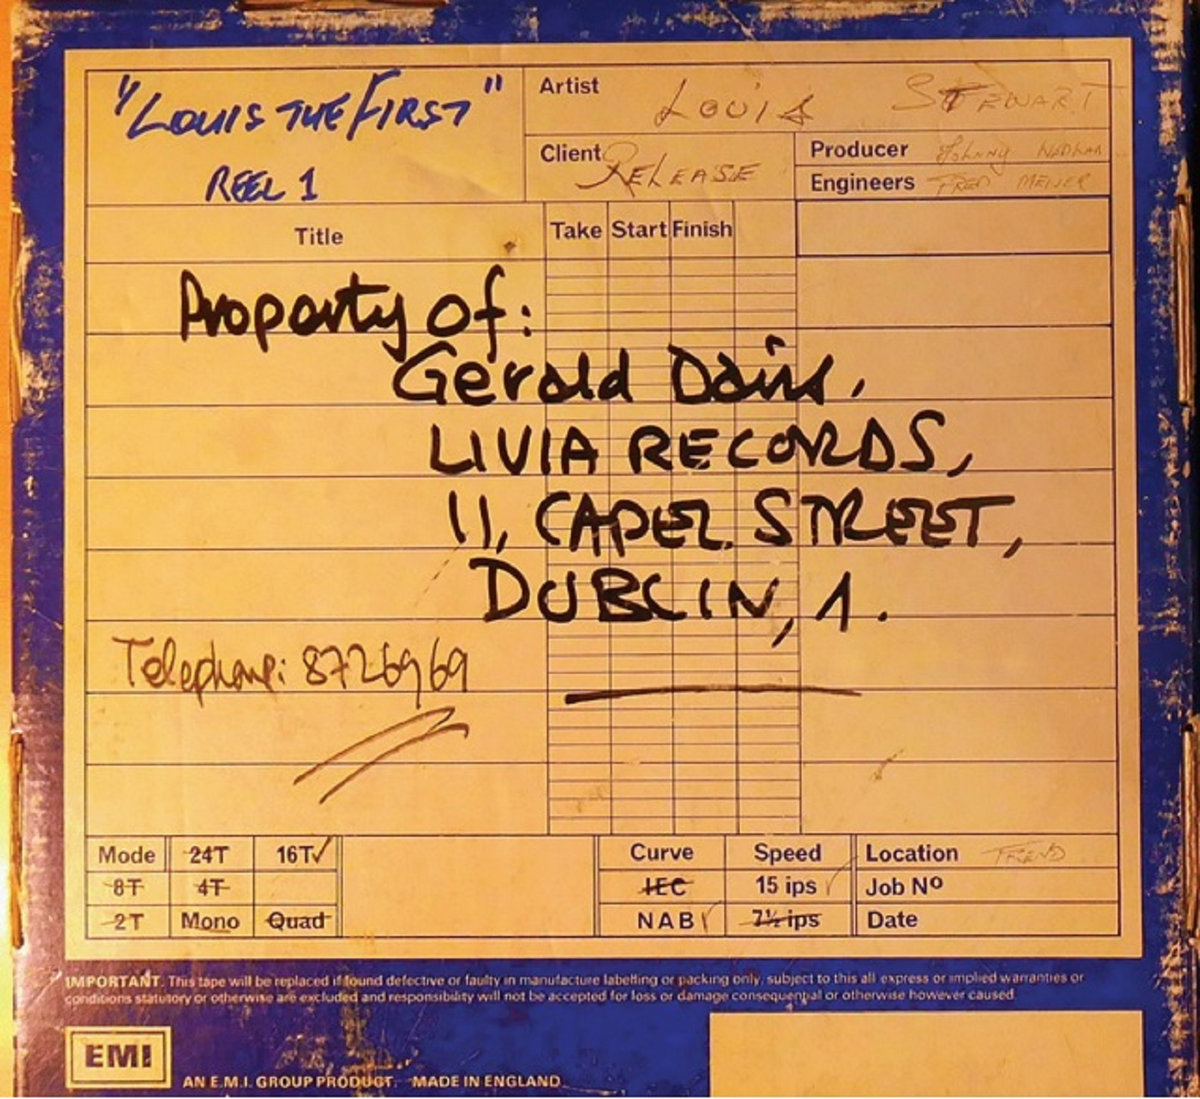 "LOUIS THE FIRST"
REEL 1
Artist LOUIS STEWART
Client RELEASE
Producer Johnny
Engineers FRED MEIJER
Title Take Start Finish
Property of:
Gerald Davis,
LIVIA RECORDS,
11, CAPEL STREET,
DUBLIN, 1.
Telephone: 8726969
Mode 24T 16T✓ Curve Speed Location TREND
8T 4T IEC 15 ips ✓ Job Nº
2T Mono Quad NAB ✓ 7½ ips Date
IMPORTANT. This tape will be replaced if found defective or faulty in manufacture labelling or packing only, subject to this all express or implied warranties or
conditions statutory or otherwise are excluded and responsibility will not be accepted for loss or damage consequential or otherwise however caused.
EMI
AN E.M.I. GROUP PRODUCT. MADE IN ENGLAND